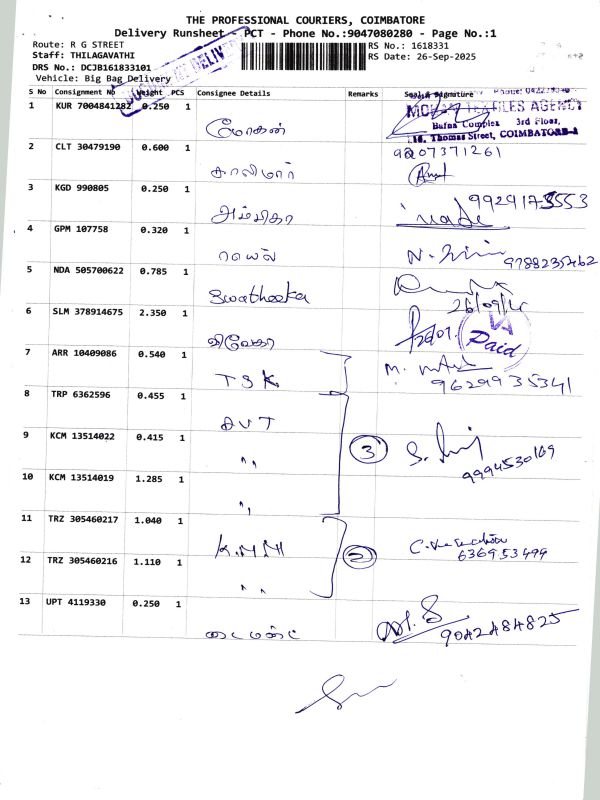 THE PROFESSIONAL COURIERS, COIMBATORE
Delivery Runsheet - PCT - Phone No.:9047080280 - Page No.:1
Route: R G STREET
RS No.: 1618331
Staff: THILAGAVATHI
RS Date: 26-Sep-2025
DRS No.: DCJB161833101
Vehicle: Big Bag Delivery
S No Consignment No Weight PCS Consignee Details Remarks Seal & Signature
MOHAN TEXTILES AGENCY
Bafna Complex 3rd Floor,
Thomas Street, COIMBATORE-1
1 KUR 7004841282 0.250 1 மோகன்
2 CLT 30479190 0.600 1 சாலிமார் 9207371261
3 KGD 990805 0.250 1 அம்பிகா
4 GPM 107758 0.320 1 ரயல்
5 NDA 505700622 0.785 1 Swatheeka 26/09/
6 SLM 378914675 2.350 1 Paid
7 ARR 10409086 0.540 1 TSK 9629935341
8 TRP 6362596 0.455 1 AVT
9 KCM 13514022 0.415 1 " 3 9994530169
10 KCM 13514019 1.285 1 "
11 TRZ 305460217 1.040 1 K.MM 636953499
12 TRZ 305460216 1.110 1 " 2
13 UPT 4119330 0.250 1 டைமண்ட் 9042484825